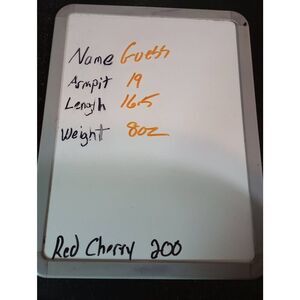 Name Guess
Armpit 19
Length 16.5
Weight 8oz
Red Cherry 200